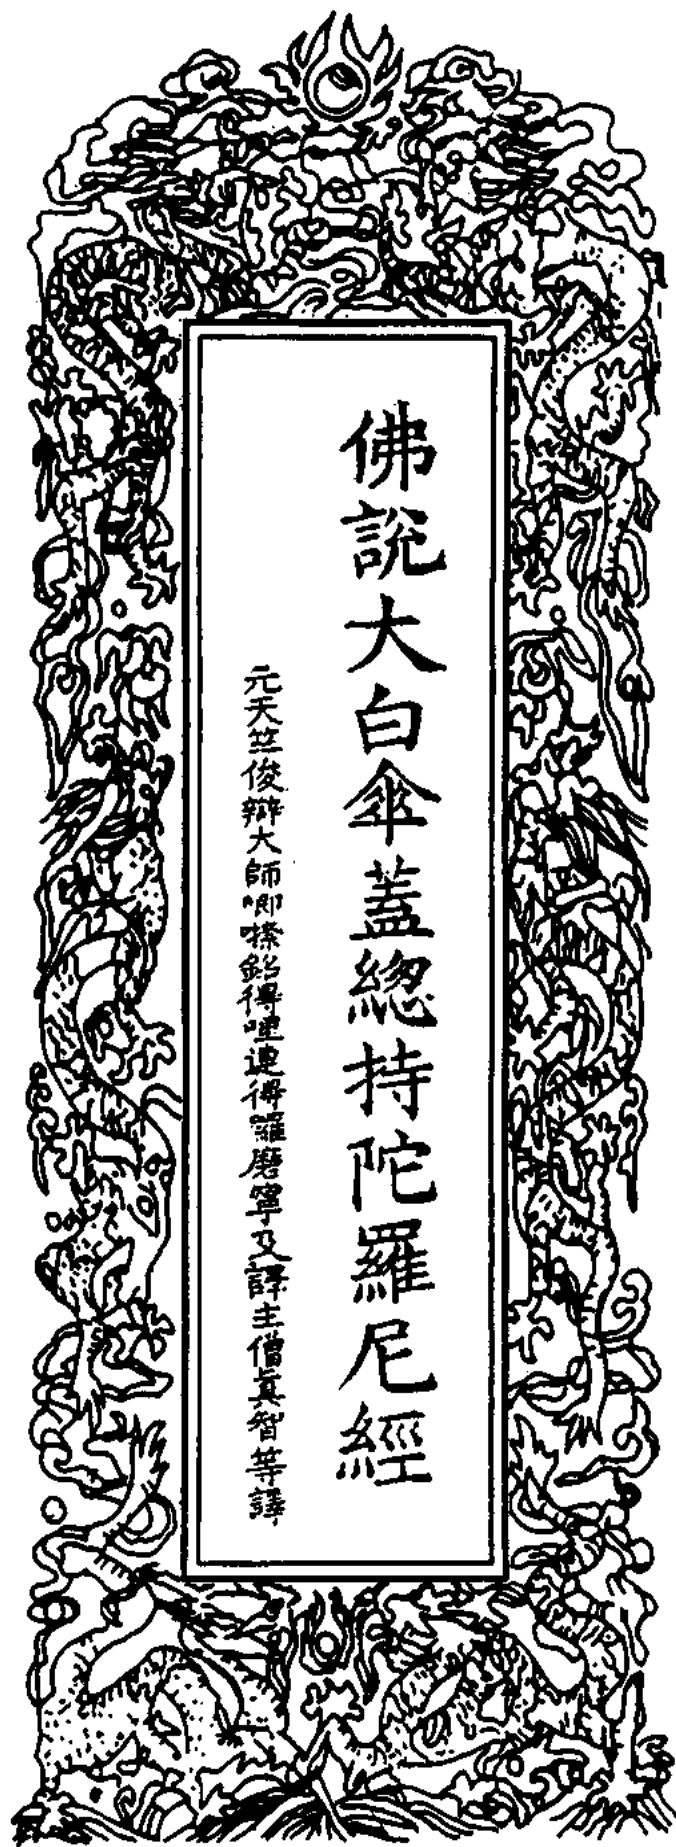 佛說大白傘蓋緫持陀羅尼經
元天竺俊辯大師唧㗚銘得哩連得囉磨寧及譯主僧真智等譯